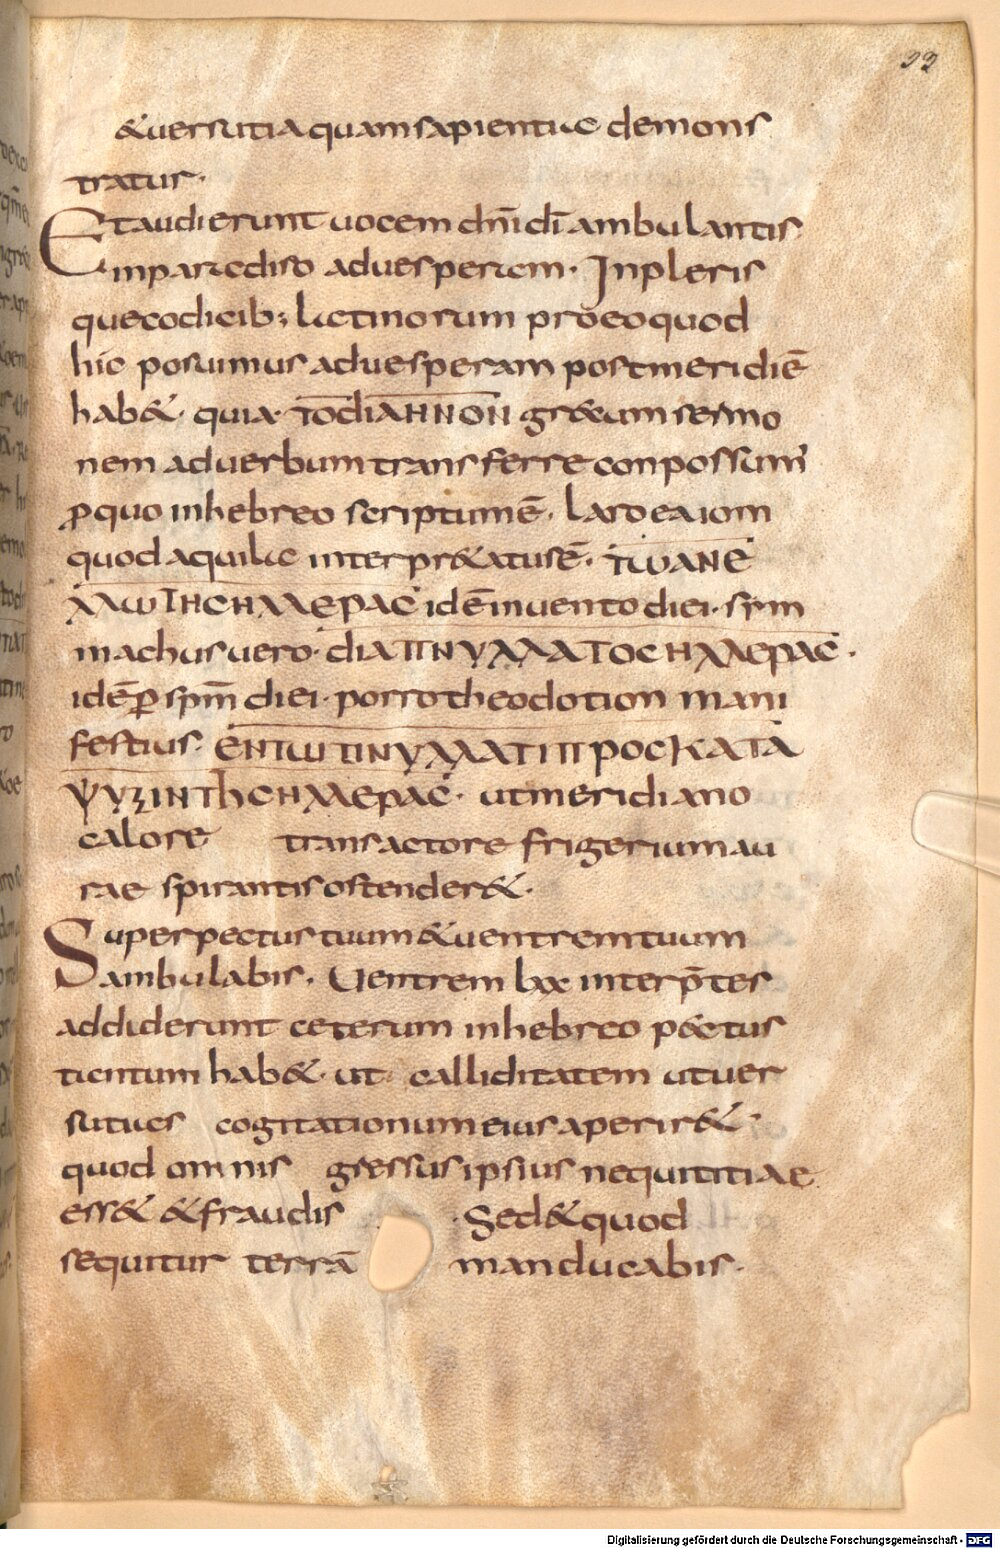 33
&uersutia quam sapientiae demons
tratus.
Et audierunt uocem dn̄i dī ambulantis
in paradiso ad uesperem. In pleris
que codicib; latinorum pro eo quod
hic posuimus ad uesperam post meridiē
hab& quia ΤΟ diΛΗΝΟΝ gr&cum sermo
nem ad uerbum transferre con possum'
ꝓ quo in hebreo scriptum ē. laroeaiom
quod aquila interpr&atus ē. ΤωΑΝΕ
ΜωΙΗCΗΜΕΡΑC id ē in uento diei. sym
machus uero. diΑΠΝΥΜΑΤΟC ΗΜΕΡΑC.
id ē ꝑ spm̄ diei. porro theodotion mani
festius. ΕΝΤω ΤΙΝΥΜΑΤΙ ΠΡΟC ΚΑΤΑ
ΨΥΞΙΝ ΤhC ΗΜΕΡΑC. ut meridiano
calore transacto re frigerium au
rae spirantis ostender&.
Super pectus tuum & uentrem tuum
ambulabis. Uentrem lxx interp̄tes
addiderunt ceterum in hebreo pectus
tantum hab& ut calliditatem utuer
sutias cogitationum eius aperir&
quod omnis gressus ipsius nequititiae
ess& & fraudis . Sed & quod
sequitur terrā manducabis.
Digitalisierung gefördert durch die Deutsche Forschungsgemeinschaft - DFG